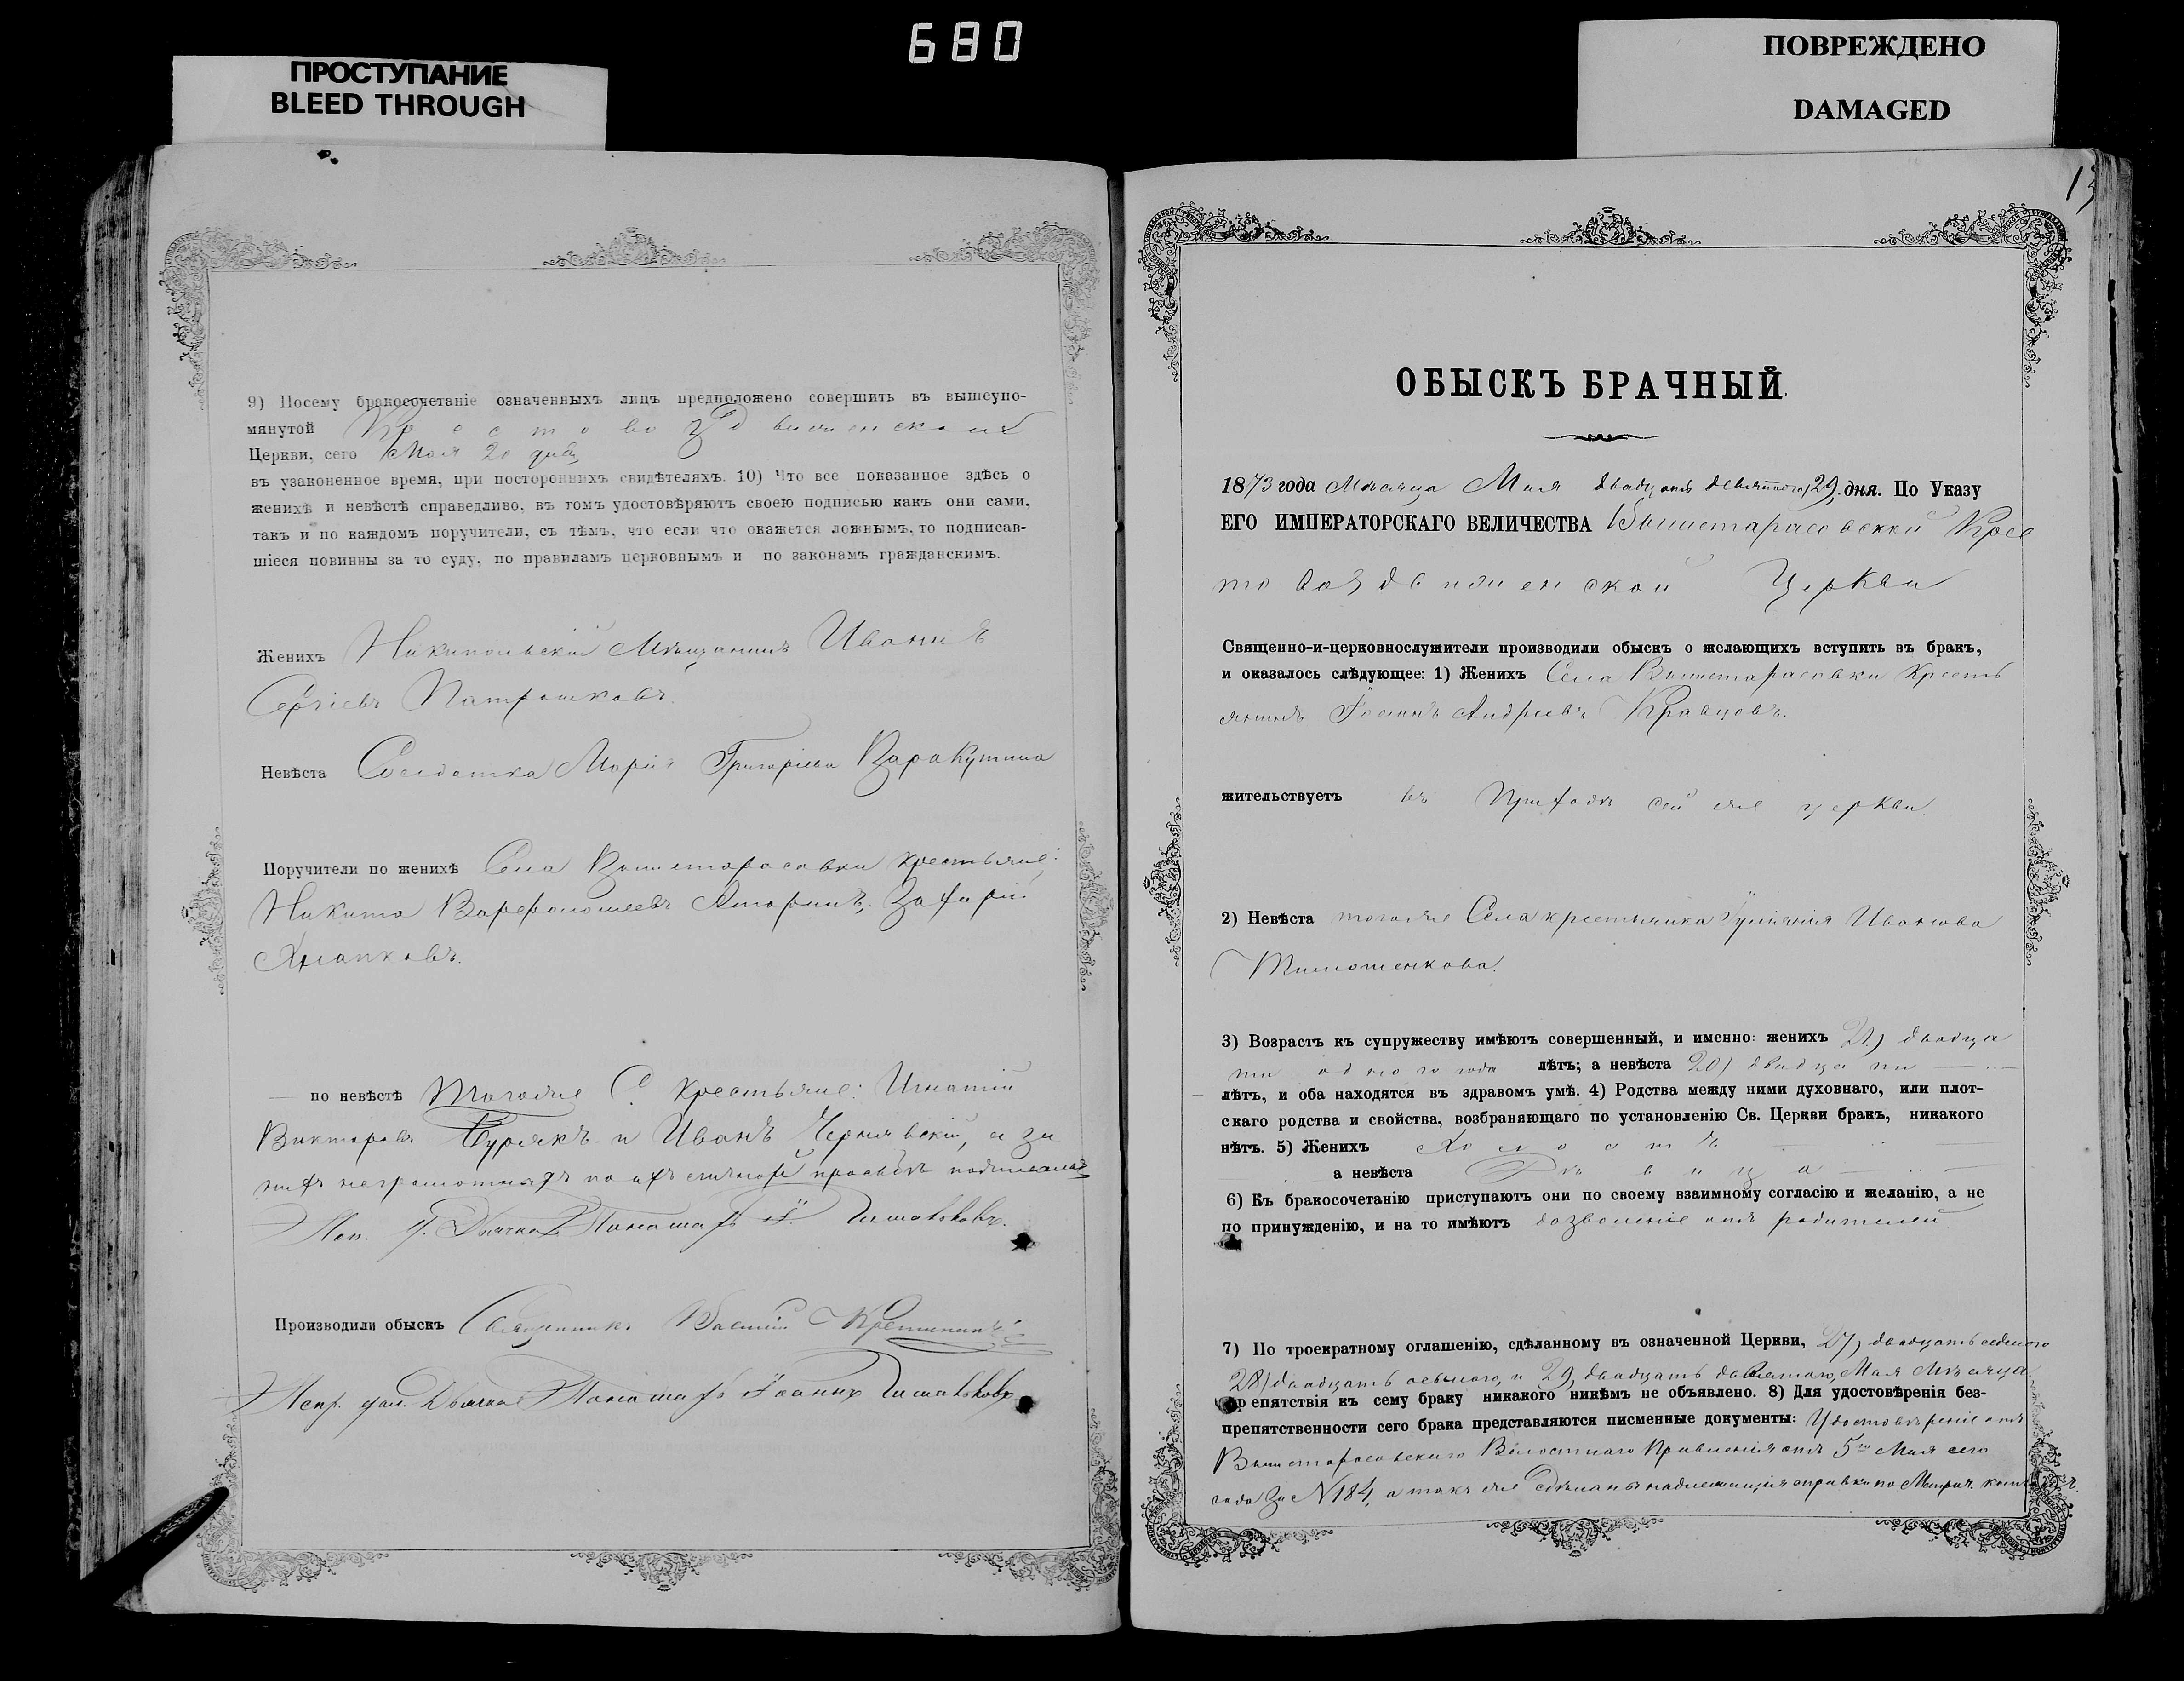 680
ПРОСТУПАНИЕ
BLEED THROUGH
ПОВРЕЖДЕНО
DAMAGED
9) Посему бракосочетаніе означенныхъ лицъ предположено совершить въ вышеупо-
мянутой Кростовоздвиженской
Церкви, сего Мая 20 дня
въ узаконенное время, при постороннихъ свидѣтеляхъ. 10) Что все показанное здѣсь о
женихѣ и невѣстѣ справедливо, въ томъ удостовѣряютъ своею подписью какъ они сами,
такъ и по каждомъ поручители, съ тѣмъ, что если что окажется ложнымъ, то подписав-
шіеся повинны за то суду, по правиламъ церковнымъ и по законамъ гражданскимъ.
Женихъ Никипольскій Мѣщанинъ Иванъ
Сергіевъ Патрошковъ.
Невѣста Солдатка Марія Григоріева
Поручители по женихѣ Села Вышетарасовки крестьяне:
Никита Варфоломеевъ Захарій
по невѣстѣ Тогоже С. крестьяне: Игнатій
Викторовъ Бурякъ и Иванъ Чернявскій, а за
нихъ неграмотныхъ по ихъ личной просьбѣ
Дьячка Пономарь
Производили обыскъ Священникъ
Дьячка Пономарь Іоаннъ
13
ОБЫСКЪ БРАЧНЫЙ.
1873 года Мѣсяца Мая двадцать девятого 29 дня. По Указу
ЕГО ИМПЕРАТОРСКАГО ВЕЛИЧЕСТВА Вышетарасовской Крес
товоздвиженской Церкви
Священно-и-церковнослужители производили обыскъ о желающихъ вступить въ бракъ,
и оказалось слѣдующее: 1) Женихъ Села Вышетарасовки Кресть
янинъ Іоаннъ Андреевъ Кравцовъ.
жительствуетъ въ Приходѣ сей же церкви.
2) Невѣста тогоже Села крестьянка Іуліянія Иванова
Тимошенкова.
3) Возрастъ къ супружеству имѣютъ совершенный, и именно: женихъ 21) двадца
ти одного года лѣтъ; а невѣста 20) двадцати
лѣтъ, и оба находятся въ здравомъ умѣ. 4) Родства между ними духовнаго, или плот-
скаго родства и свойства, возбраняющаго по установленію Св. Церкви бракъ, никакого
нѣтъ. 5) Женихъ Холостъ
а невѣста Дѣвица
6) Къ бракосочетанію приступаютъ они по своему взаимному согласію и желанію, а не
по принужденію, и на то имѣютъ дозволеніе отъ родителей.
7) По троекратному оглашенію, сдѣланному въ означенной Церкви, 27) двадцать седьмого
28) двадцать осьмого, и 29) двадцать девятого, Мая Мѣсяца
препятствія къ сему браку никакого никѣмъ не объявлено. 8) Для удостовѣренія без-
препятственности сего брака представляются писменные документы: Удостовѣреніе отъ
Вышетарасовскаго Волостнаго Правленія отъ 5го Мая сего
года за N 184, а такъ же сдѣланы надлежащія справки по Метрич.